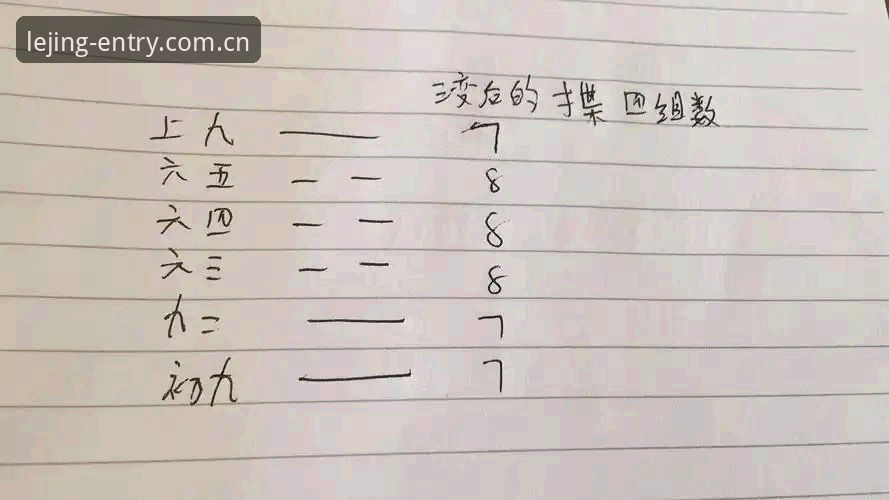 lejing-entry.com.cn
三变后的揲四组数
上九 7
六五 8
六四 8
六三 8
九二 7
初九 7